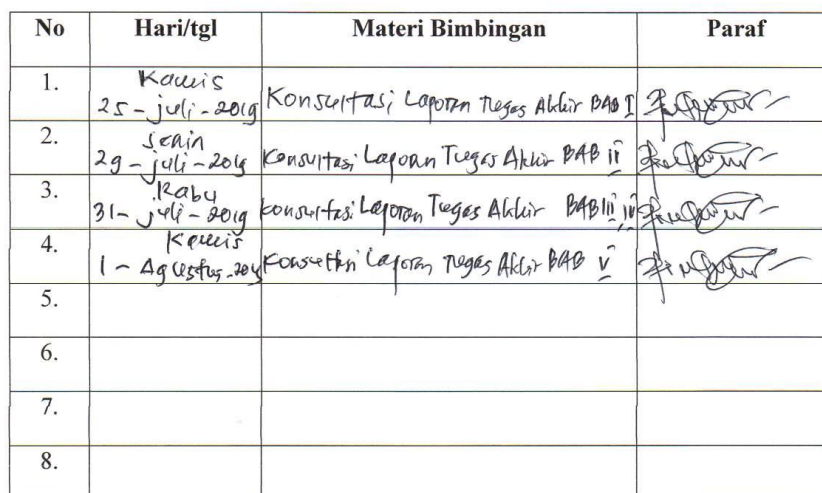 No Hari/tgl Materi Bimbingan Paraf
1. Kamis
25 - juli - 2019 Konsultasi Laporan Tugas Akhir BAB I
2. Senin
29 - juli - 2019 Konsultasi Laporan Tugas Akhir BAB II
3. Rabu
31 - juli - 2019 Konsultasi Laporan Tugas Akhir BAB III IV
4. Kamis
1 - Agustus - 2019 Konsultasi Laporan Tugas Akhir BAB V
5.
6.
7.
8.